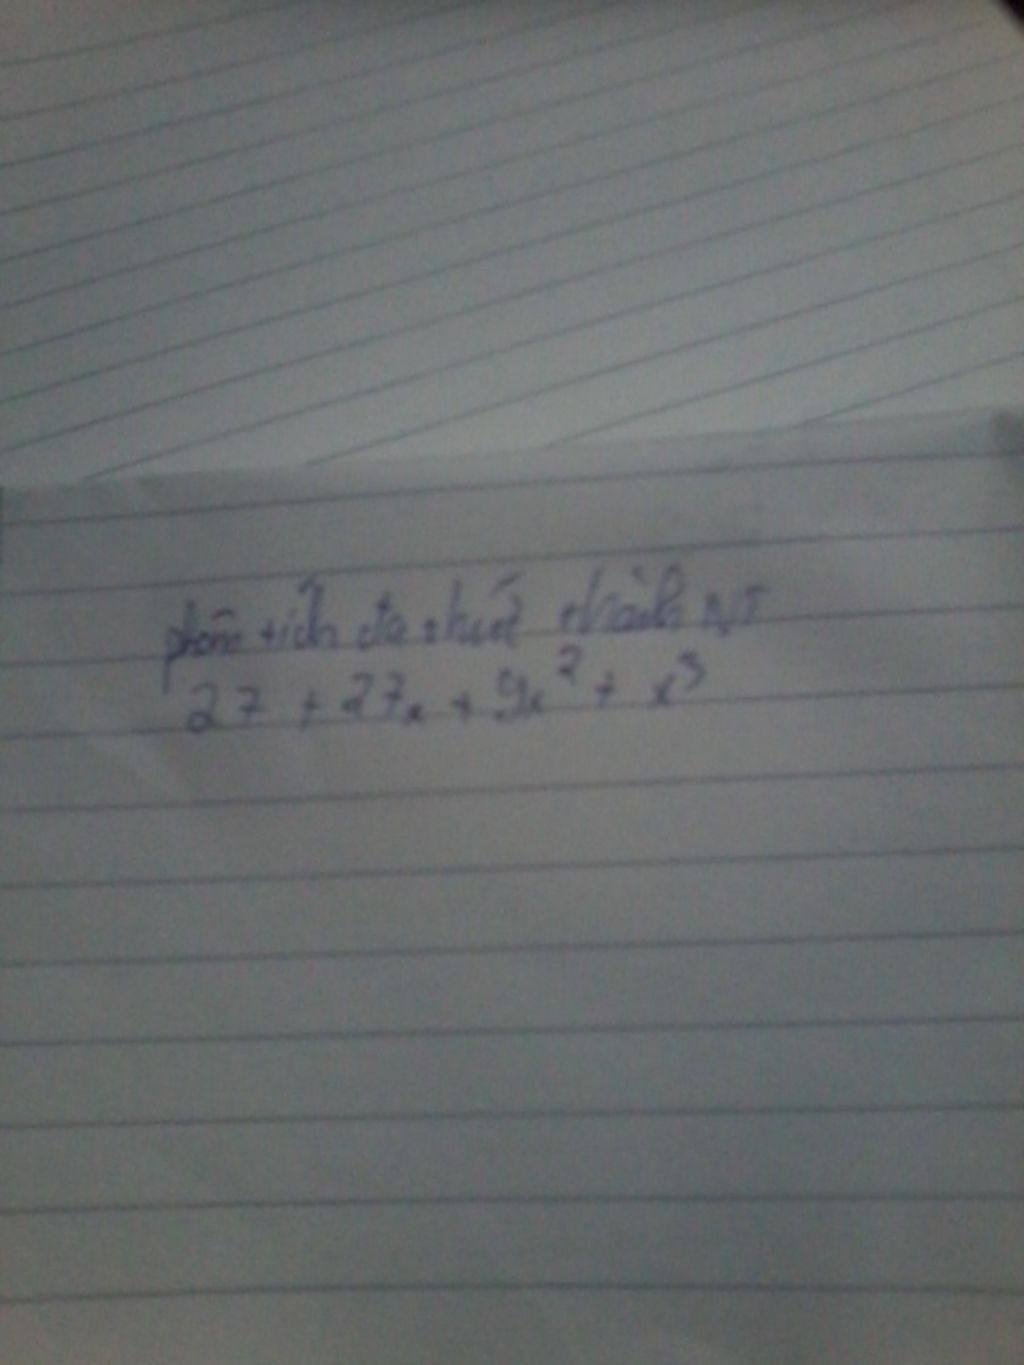 phân tích đa thức thành NT
27 + 27x + 9x² + x³